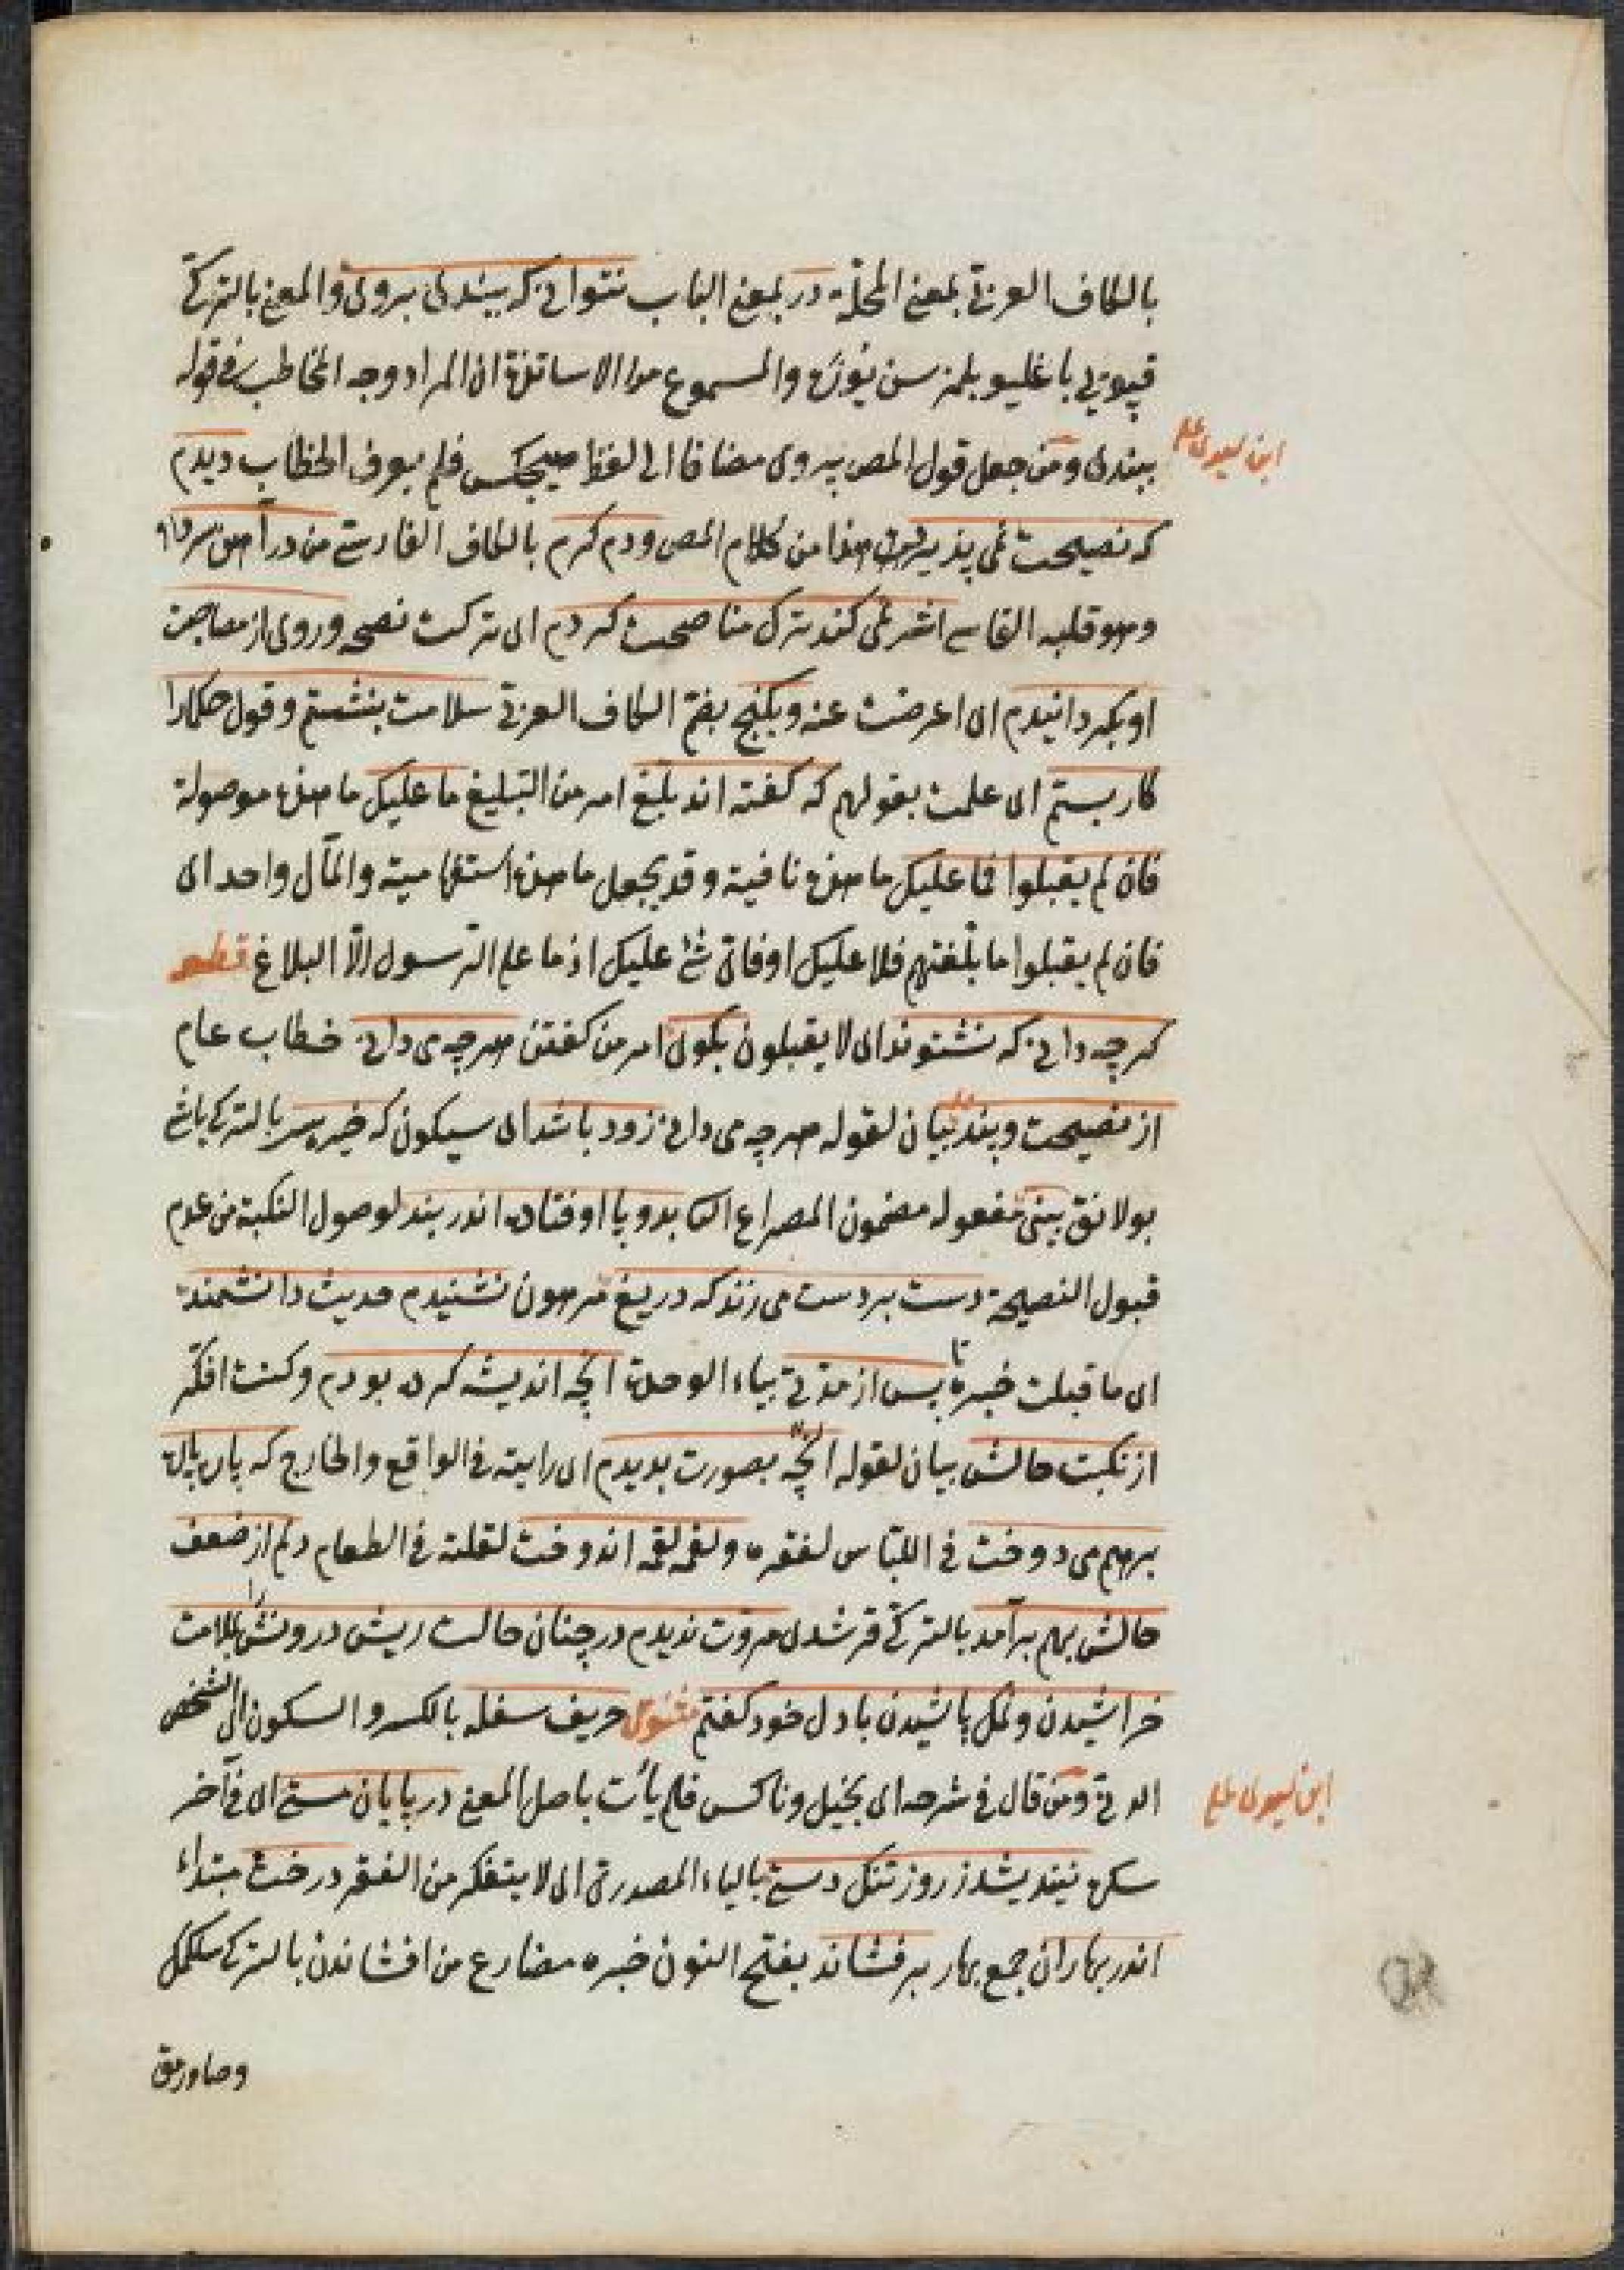 بالكاف العربي بمعنى المحلة در بمعنى الباب نتواني كه ببندى بروى والمعنى بالتركي
قپويى باغليو بلمز سن يوزك والمسموع من الاساتذة ان المراد وجه المخاطب فى قوله
ببندى ومن جعل قول المص بروى مضافا الى لفظ هيچكس فلم يعرف الخطاب ديدم
ابن سيدى على
كه نصيحت نمى پذيرد هذا من كلام المص ودم كرم بالكاف الفارسى من در آهن سرد او
وهو قلبه القاسى اثر نمى كند ترك مناصحت كردم اى تركت نصحه وروى از مصاحبت
او بكردانيدم اى اعرضت عنه وبكنج بضم الكاف العربي سلامت بنشستم وقول حكما را
كار بستم اى علمت بقولهم كه كفته اند بلغ امر من التبليغ ما عليك ما هذه موصولة
فان لم يقبلوا فما عليك ما هذه نافية وقد يجعل ما هذه استفهامية والمآل واحد اى
فان لم يقبلوا ما بلغتهم فلا عليك او فاى شئ عليك اذ ما على الرسول الا البلاغ قطعه
كرچه دانى كه نشنوند اى لا يقبلون بكوى امر من كفتن هرچه مى دانى خطاب عام
از نصيحت وپند بيان لقوله هرچه مى دانى زود باشد اى سيكون كه خيره سر بالتركى باشى
بولانق بينى مفعوله مضمون المصراع الثا بدو پا اوفتاده اندر بند لوصول النكبة من عدم
قبول النصيحة دست بر دست مى زند كه دريغ مرهون نشنيدم حديث دانشمند
اى ما قبلت خبره تا پس از مدتى بياء الوحدة آنچه انديشه كرده بودم وكنت افكر
از نكبت حالش بيان لقوله آنچه بصورت بديدم اى رايته فى الواقع والخارج كه پاره پاره
برهم مى دوخت فى اللباس لفقره ولقمه لقمه اندوخت لقلته فى الطعام دلم از ضعف
حالش بهم برآمد بالتركى قرشدى مروت نديدم در چنان حالت ريش درونش را بملامت
خراشيدن ونمك پاشيدن با دل خود كفتم مثنوى حريف سفله بالكسر والسكون اى الشخص
الدنى ومن قال فى شرحه اى بخيل وناكس فلم يأت باصل المعنى در پايان مستى اى فى آخر
ابن سيدى على
سكره نينديشد ز روز تنك دستى بالياء المصدرى اى لا يتفكر من الفقر درخت مبتداء
اندر بهاران جمع بهار برفشاند بفتح النون خبره مضارع من افشاندن بالتركى سلكمك